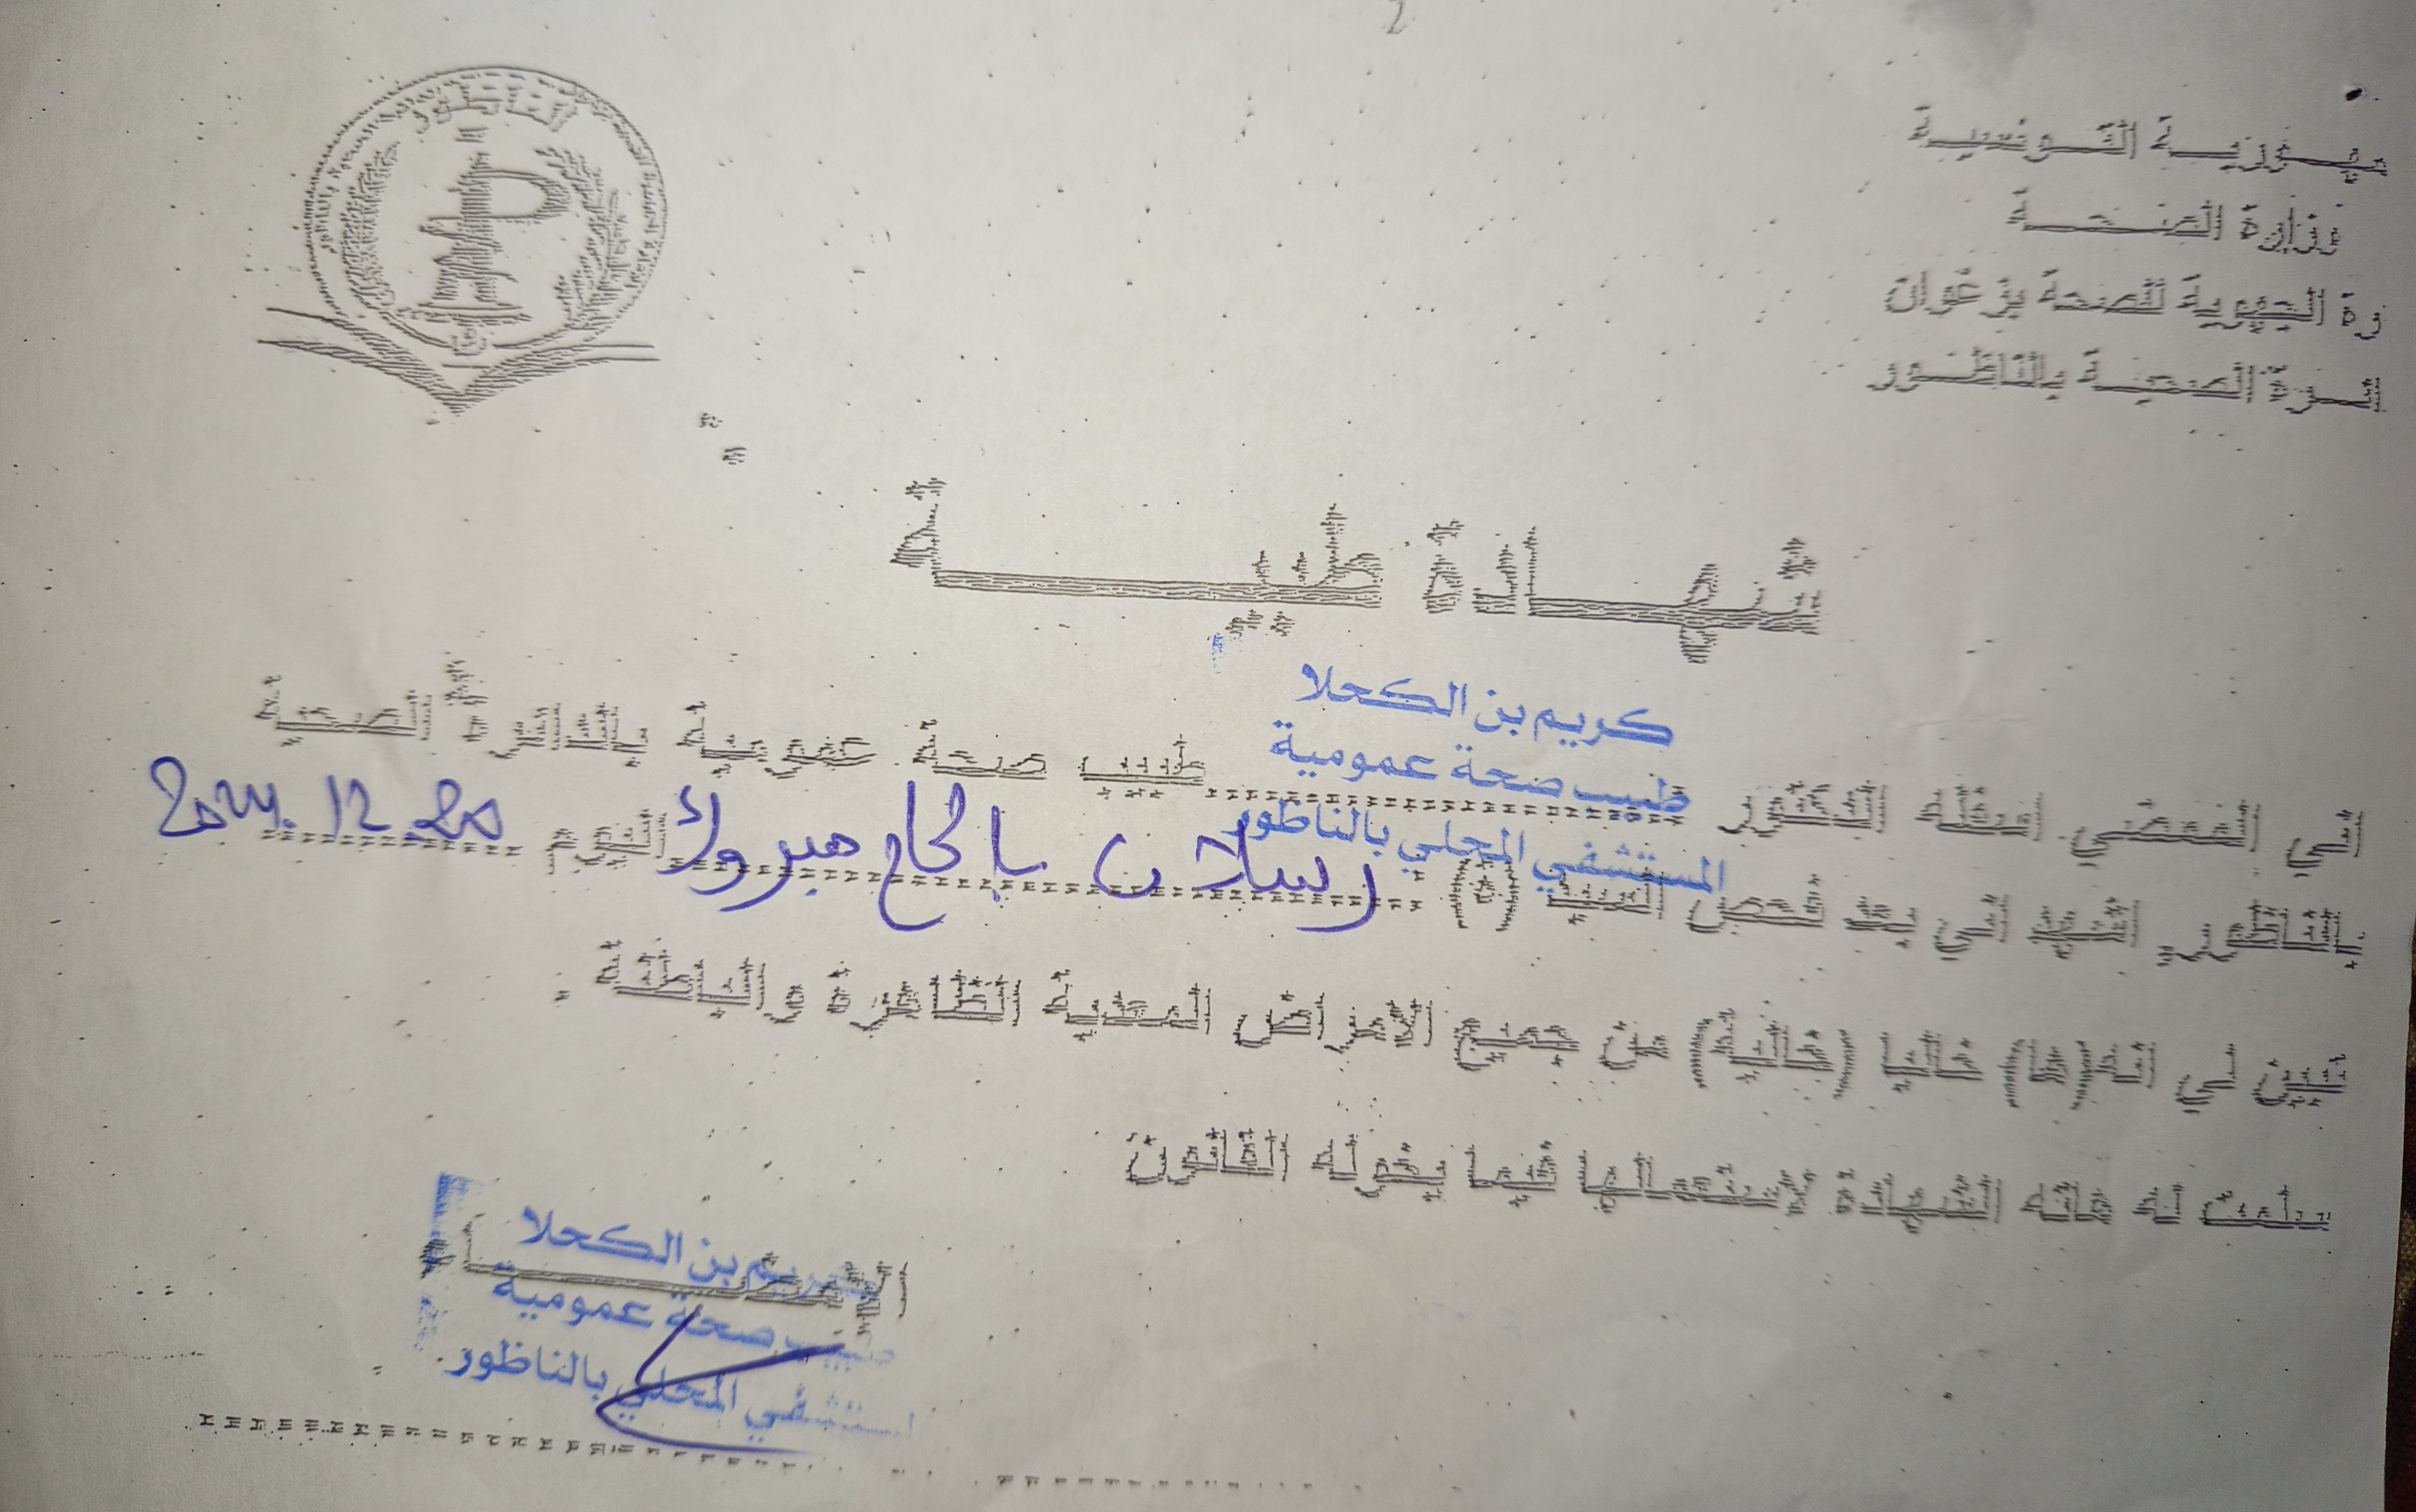 الناظور
ـهـورية التونسية
وزارة الصحة
ـرة الجهوية للصحة بزغوان
ـرة الصحية بالناظور
شهادة طبية
كريم بن الكحلا
طبيب صحة عمومية
المستشفى المحلي بالناظور
ـي الممضي أسفله الدكتور طبيب صحة عمومية بالدائرة الصحية
بالناظور أشهد أني بعد فحص السيد (ة) رسلان بالحاج مبروك اليوم 2024.12.20
تبين لي من جميع الأمراض المعدية الظاهرة والباطنة .
سلمت له هذه الشهادة لاستعمالها فيما يخوله القانون
كريم بن الكحلا
طبيب صحة عمومية
المستشفى المحلي بالناظور